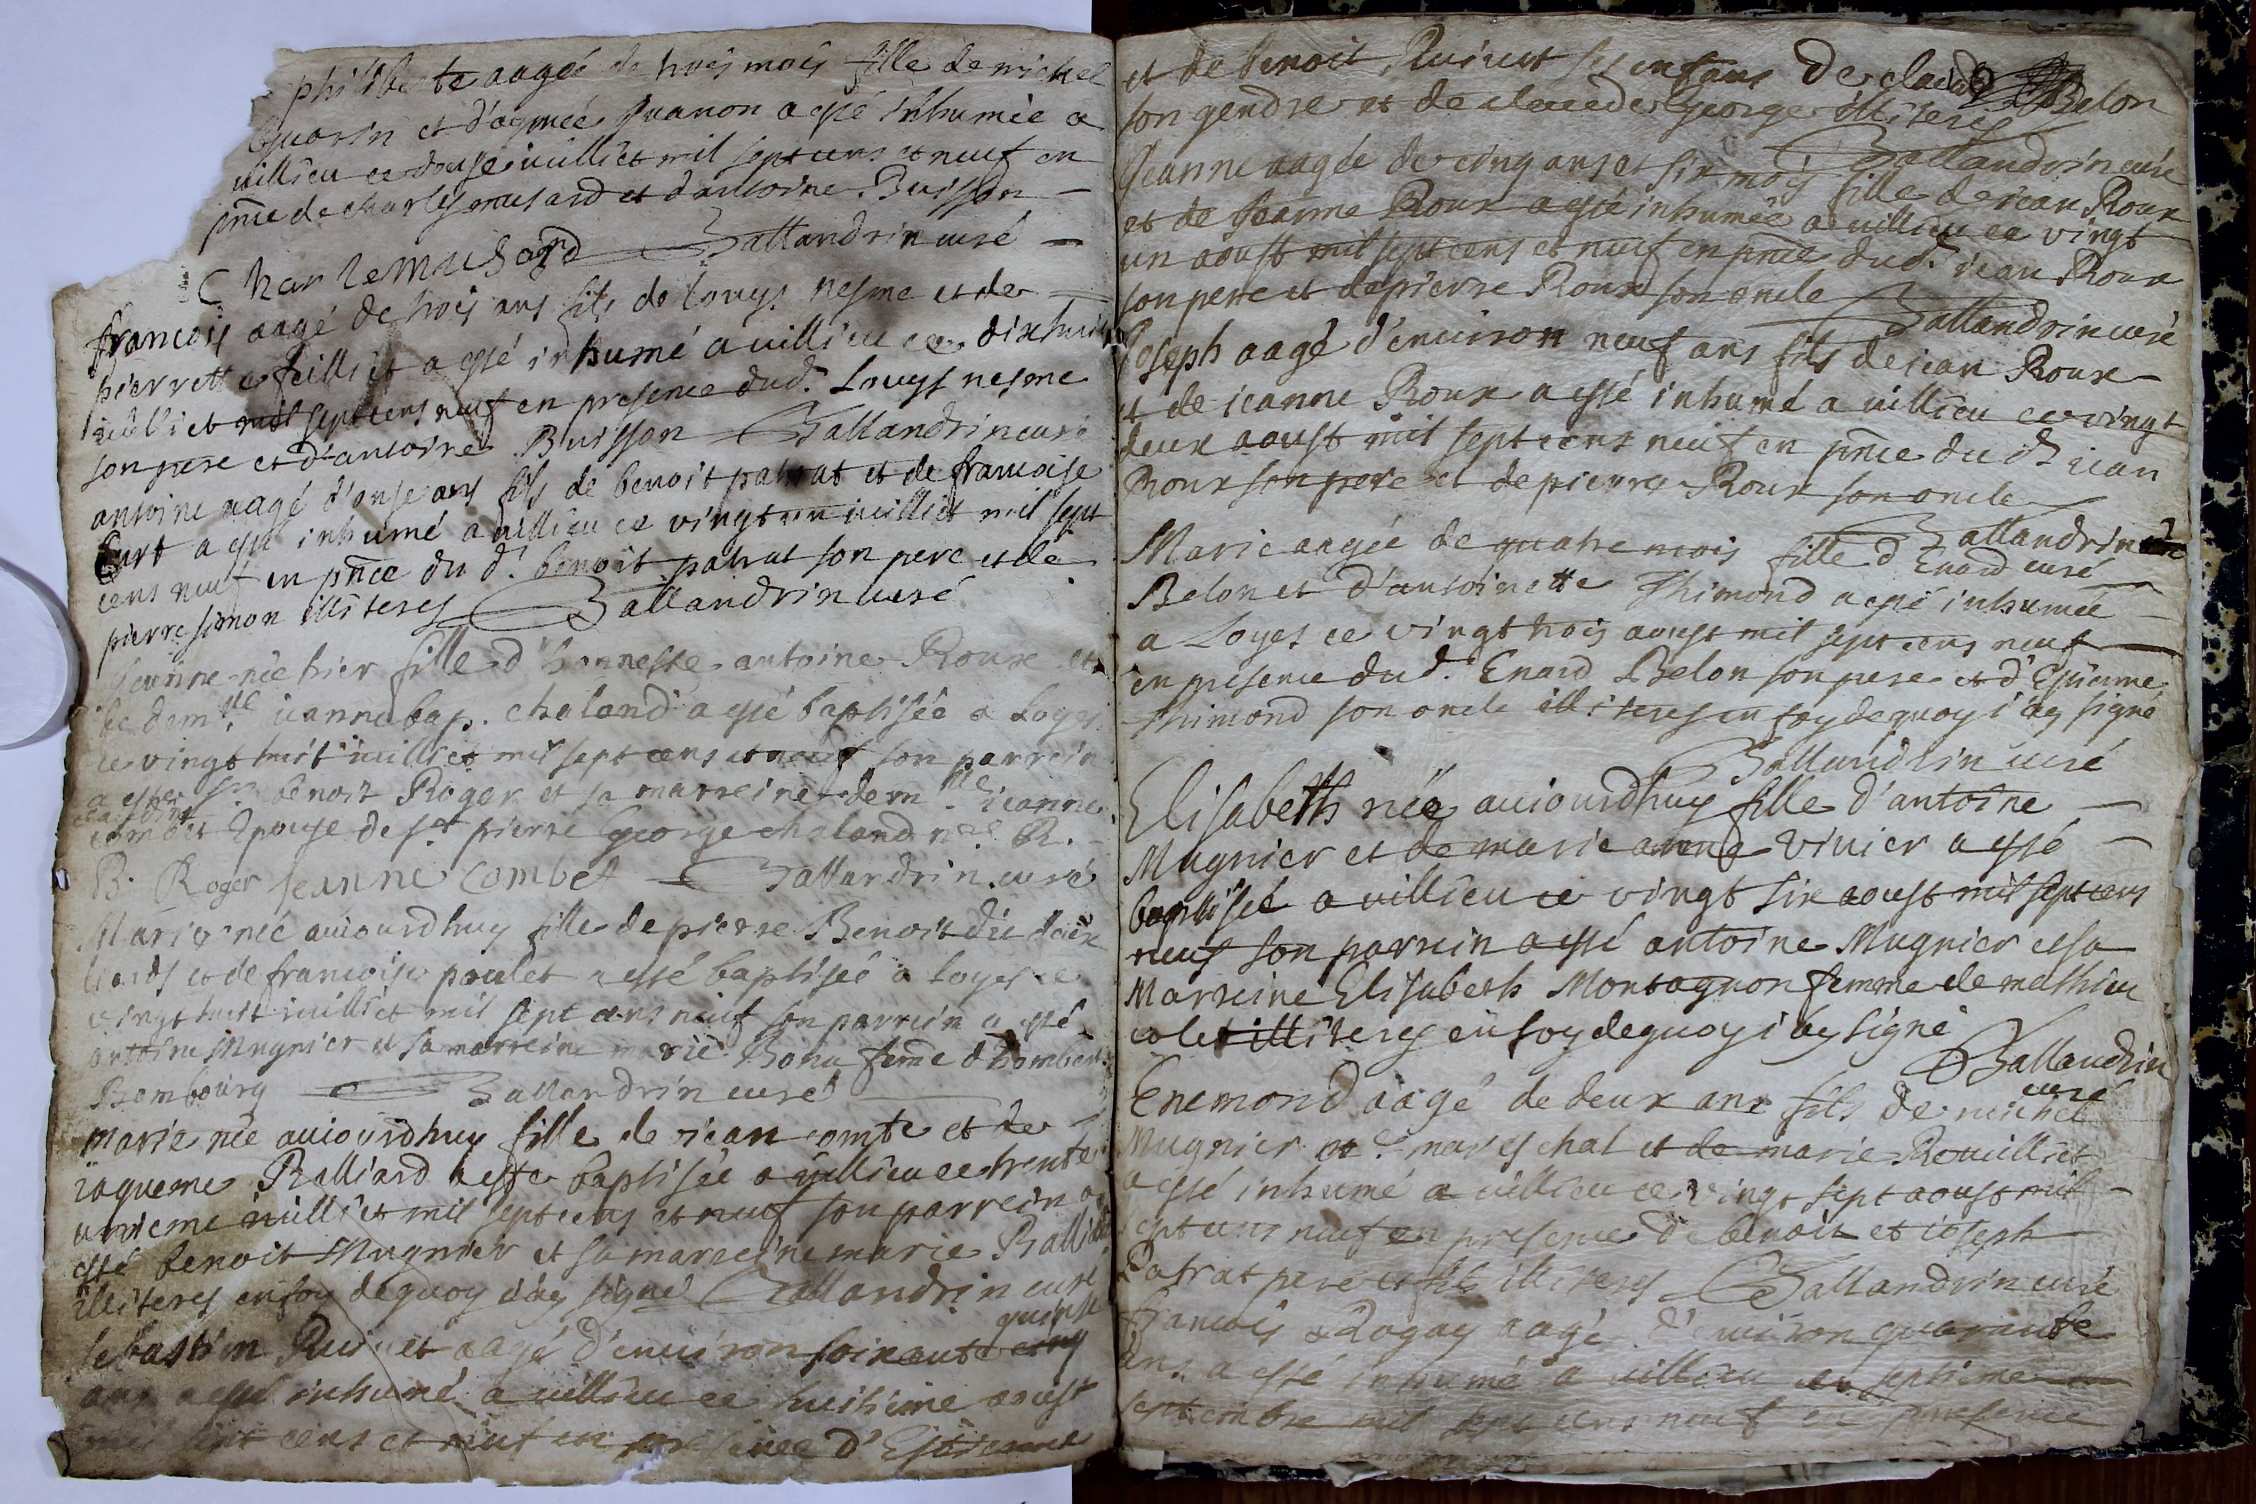 philiberte aagée de trois mois fille de michel
Guarin et d'aymée Juanon a esté inhumée a
villieu ce douse iuilliet mil sept cens et neuf en
pnce de charles musard et d'antoine Buisson
Charle Musard Ballandrin curé
francois aagé de trois ans fils de Louys nesme et de
pierrette feilliet a esté inhumé a villieu ce dixhuit
iuilliet mil sept cens neuf en presence dud. Louys nesme
son pere et d'antoine Buisson Ballandrin curé
antoine aagé d'onse ans fils de benoit patrat et de francoise
Curt a esté inhumé a villieu ce vingt un iuilliet mil sept
cens neuf en pnce du d. benoit patrat son pere et de
pierre simon illiteres Ballandrin curé
Jeanne née hier fille d'honneste antoine Roux et
de demlle ieanne bap. chaland a esté baptisée a Loyes
ce vingt huit iuilliet mil sept cens et neuf son parrein
a esté sr benoit Roger et sa marreine demlle ieanne
combet Epouse de sr pierre george chaland nre R.
B. Roger Jeanne Combet Ballandrin curé
Marie née auiourdhuy fille de pierre Benoit dit
et de francoise poulet a esté baptisée a Loyes ce
vingt huit iuilliet mil sept cens neuf son parrein a esté
antoine Mugnier et sa marreine marie Bona feme d'hombert
Bombourg Ballandrin curé
Marie née auiourdhuy fille de iean comte et de
iaqueme Ralliard a esté baptisée a villieu ce trente
unieme iuilliet mil sept cens et neuf son parrein a
esté benoit Mugnier et sa marreine marie Ralliard
illiteres en foy dequoy i'ay signé Ballandrin curé
quinse
sebastien Ruivet aagé d'environ soixante cinq
ans a esté inhumé a villieu ce huitieme aoust
mil sept cens et neuf en presence d'Estienne
et de benoit Ruivet ses enfans De claude Belon
son gendre et de claude George illiteres
Ballandrin curé
Jeanne aagée de cinq ans et six mois fille de iean Roux
et de Jeanne Roux a esté inhumée a villieu ce vingt
un aoust mil sept cens et neuf en pnce dud. iean Roux
son pere et de pierre Roux son oncle
Ballandrin curé
Joseph aagé d'environ neuf ans fils de iean Roux
et de ieanne Roux a esté inhumé a villieu ce vingt
deux aoust mil sept cens neuf en pnce du d. iean
Roux son pere et de pierre Roux son oncle
Ballandrin
Marie aagée de quatre mois fille d'Enard curé
Belon et d'antoinette Thimond a esté inhumée
a Loyes ce vingt trois aoust mil sept cens neuf
en presence dud. Enard Belon son pere et d'Estienne
thimond son oncle illiteres en foy dequoy i'ay signé
Ballandrin curé
Elisabeth née auiourdhuy fille d'antoine
Mugnier et de marie anne vivier a esté
baptisée a villieu ce vingt six aoust mil sept cens
neuf son parrein a esté antoine Mugnier et sa
Marreine Elisabeth Montagnon femme de mathieu
colet illiteres en foy dequoy i'ay signé
Ballandrin
curé
Enemond aagé de deux ans fils de michel
Mugnier me mareschal et de marie Rouilliet
a esté inhumé a villieu ce vingt sept aoust mil
sept cens neuf en presence de benoit et ioseph
Patrat pere et fils illiteres Ballandrin curé
francois Rogay aagé d'environ quarante
ans a esté inhumé a villieu ce septieme
septembre mil sept cens neuf en presence